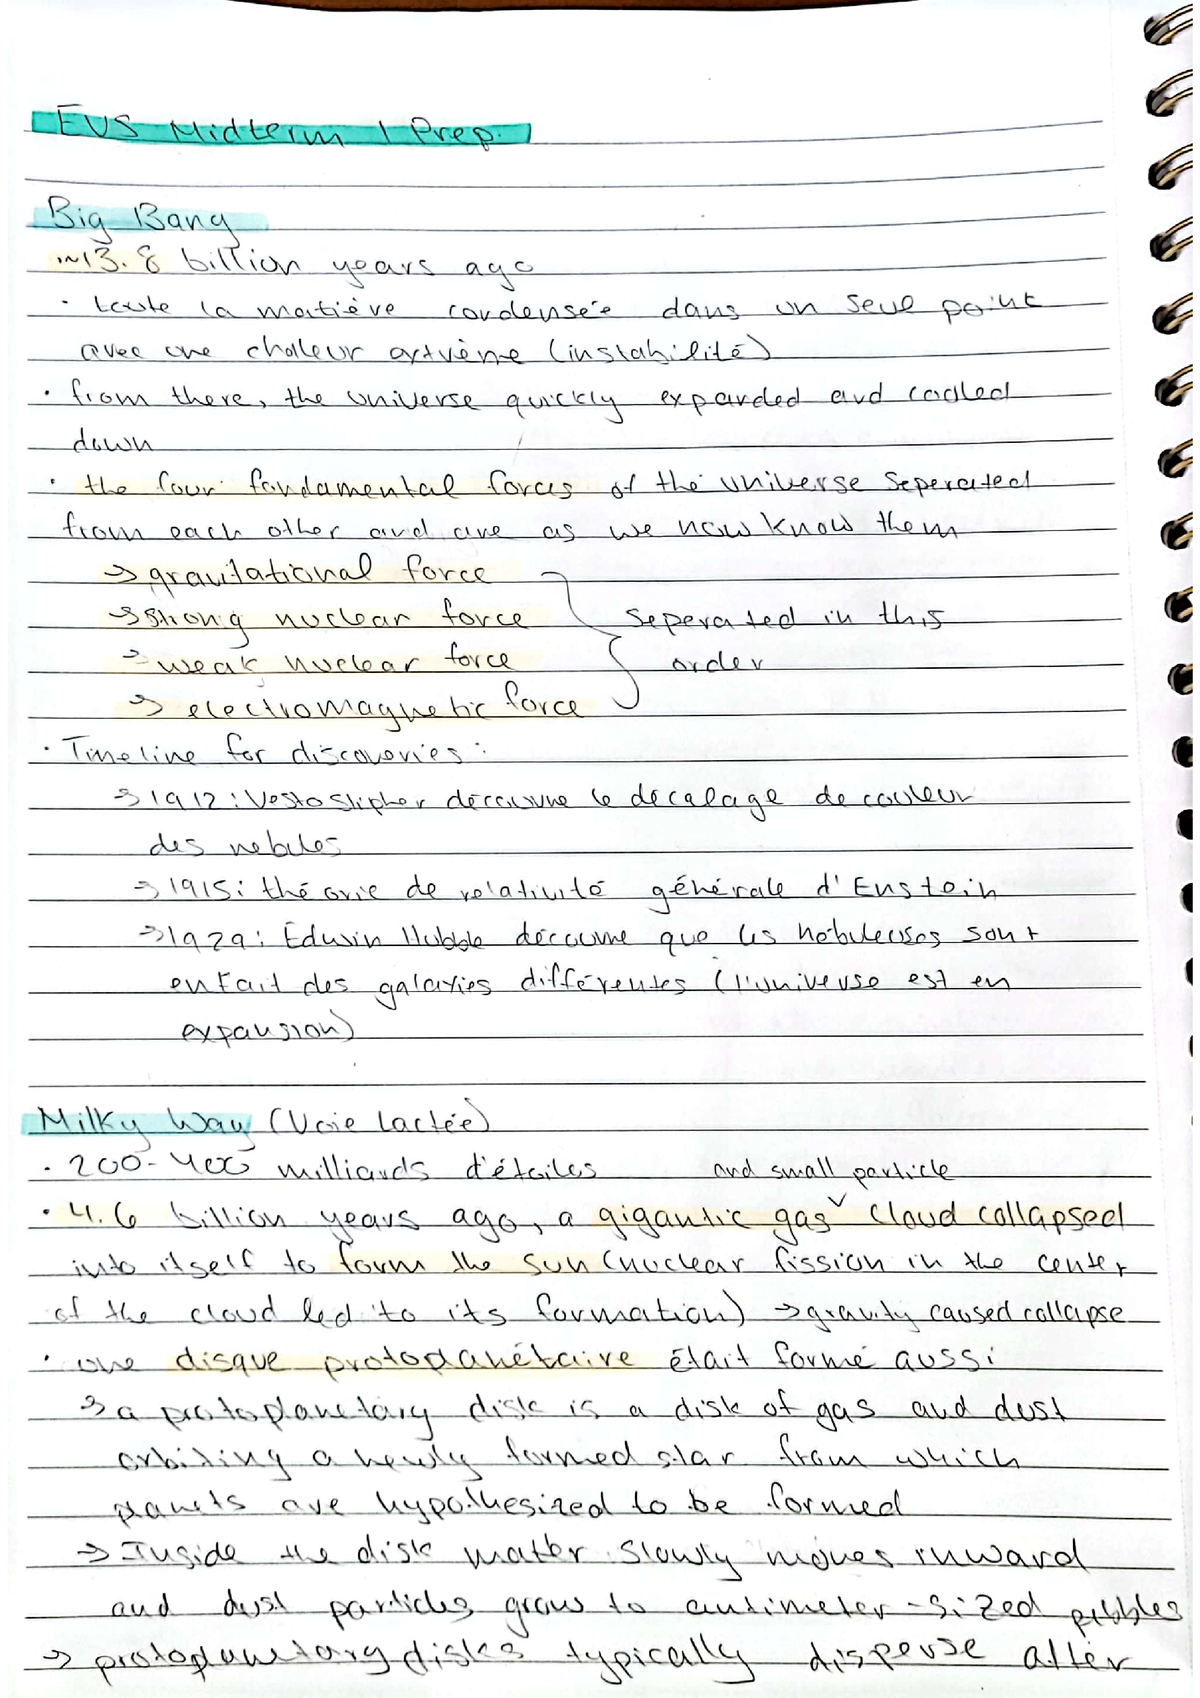 EVS Midterm 1 Prep.
Big Bang
~13.8 billion years ago
· toute la matière condensée dans un seul point
avec une chaleur extrème (instabilité)
· from there, the universe quickly expanded and cooled
down
· the four fondamental forces of the universe seperated
from each other and are as we now know them
→ gravitational force
→ strong nuclear force seperated in this
→ weak nuclear force order
→ electromagnetic force
· Timeline for discoveries:
→ 1912: Vesto Slipher découvre le décalage de couleur
des nebules
→ 1915: théorie de relativité générale d'Einstein
→ 1929: Edwin Hubble découvre que les nébuleuses sont
en fait des galaxies différentes (l'universe est en
expansion)
Milky Way (Voie Lactée)
· 200-400 milliards d'étoiles and small particle
· 4.6 billion years ago, a gigantic gas cloud collapsed
into itself to form the sun (nuclear fission in the center
of the cloud led to its formation) → gravity caused collapse
· une disque protoplanétaire était formé aussi
→ a protoplanetary disk is a disk of gas and dust
orbiting a newly formed star from which
planets are hypothesized to be formed
→ Inside the disk matter slowly moves inward
and dust particles grow to centimeter-sized pebbles
→ protoplanetary disks typically disperse after